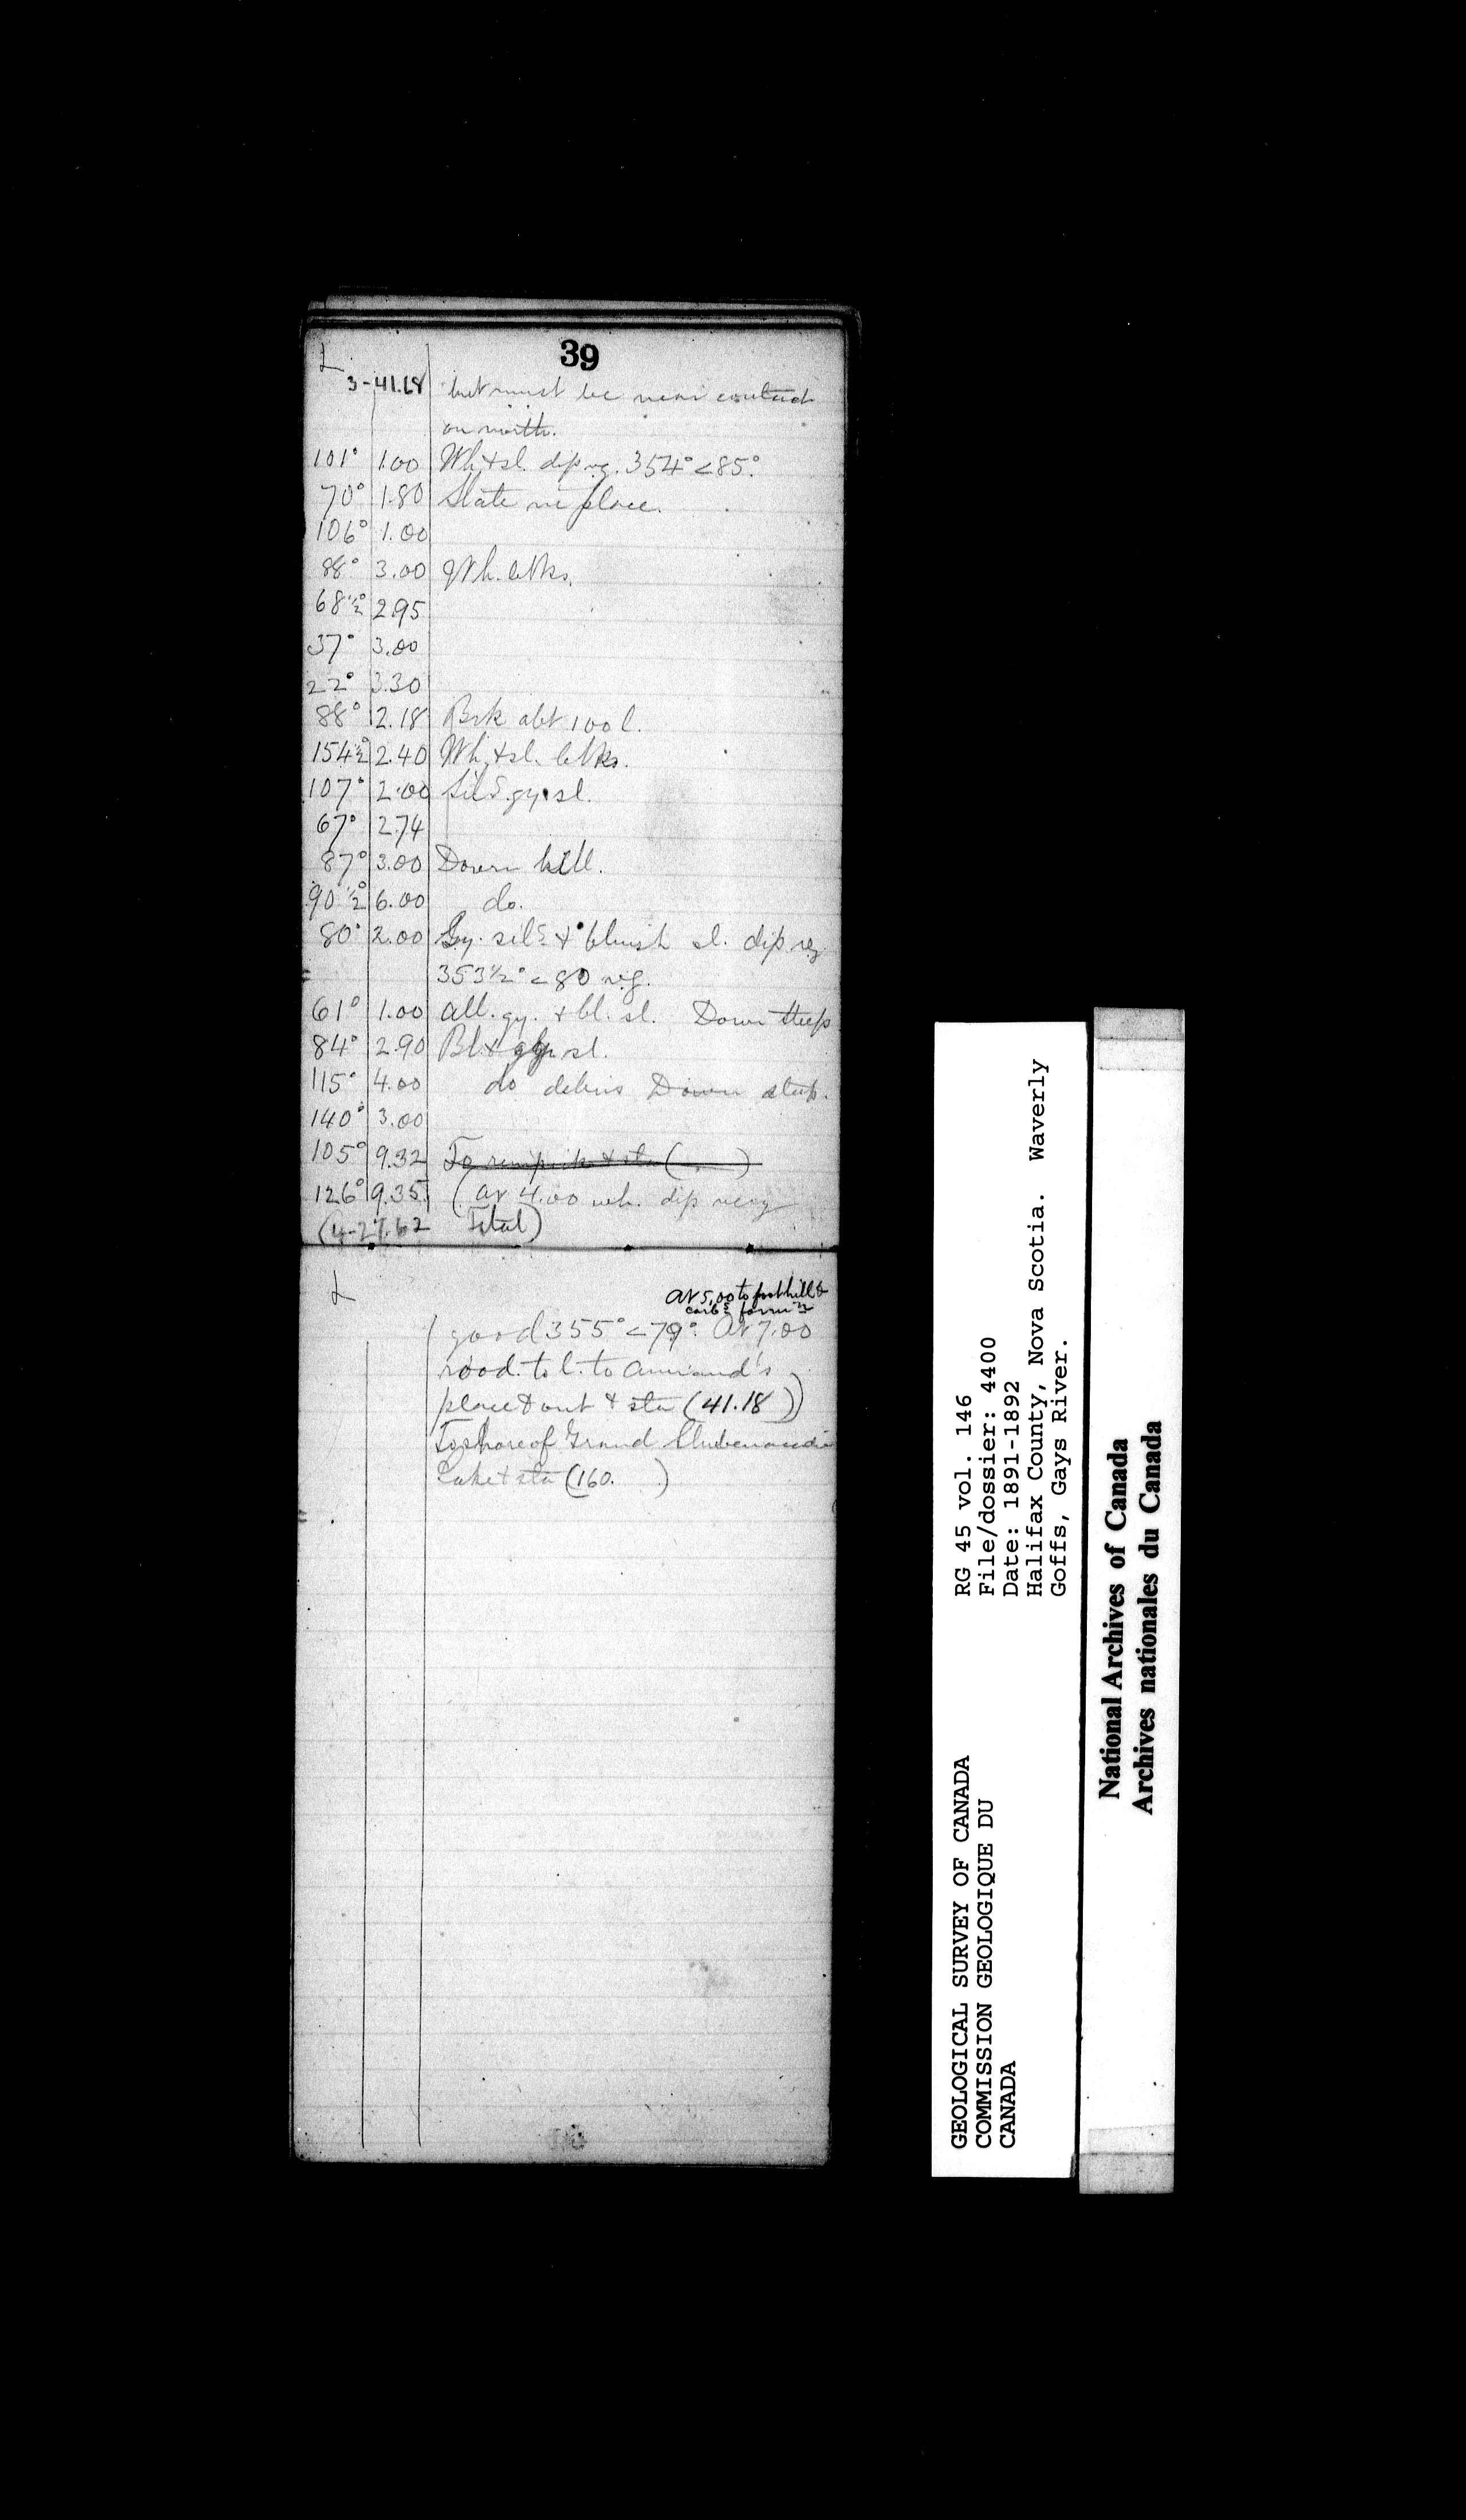 39
L
3-41.18 but must be near contact
on north.
101° 1.00 Wh. & sl. dip v.g. 354° < 85°.
70° 1.80 Slate in place.
106° 1.00
88° 3.00 Wh. blks.
68½° 2.95
37° 3.00
22° 3.30
88° 2.18 Brk abt 100 l.
154½° 2.40 Wh. & sl. blks.
107° 2.00 Sils. gy. sl.
67° 2.74
87° 3.00 Down hill.
90½° 6.00 do.
80° 2.00 Gy. sils. & bluish sl. dip reg
353½° < 80 v.g.
61° 1.00 All. gy. & bl. sl. Down steep
84° 2.90 Bl. & gy. sl.
115° 4.00 do debris Down steep.
140° 3.00
105° 9.32 To & sta ( . )
126° 9.35 (At 4.00 wh. dip very
(4-27.62 Total)
L
At 5.00 to foot hill &
carbs. formn.
good 355° < 79°. At 7.00
road to l. to
place & out & sta (41.18))
To shore of Grand Shubenacadie
Lake & sta (160. )
RG 45 vol. 146
File/dossier: 4400
Date: 1891-1892
Halifax County, Nova Scotia. Waverly
Goffs, Gays River.
GEOLOGICAL SURVEY OF CANADA
COMMISSION GEOLOGIQUE DU
CANADA
National Archives of Canada
Archives nationales du Canada